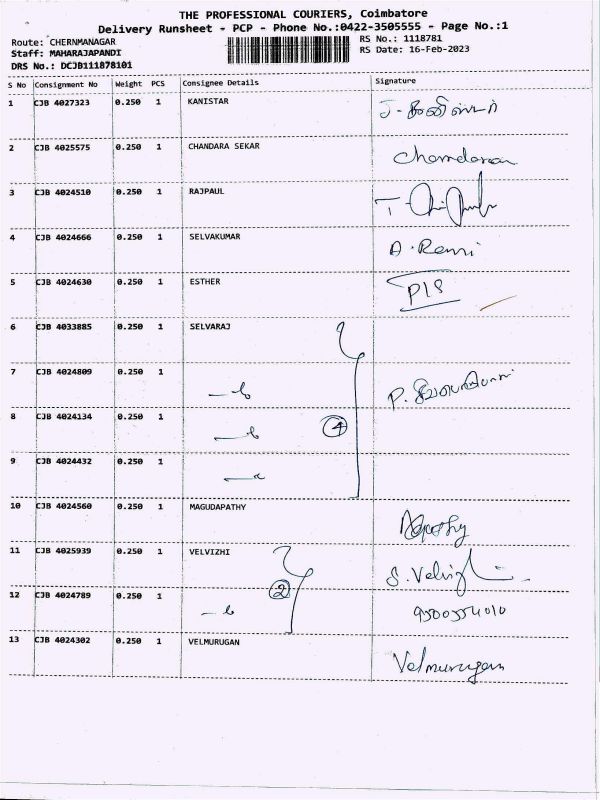 THE PROFESSIONAL COURIERS, Coimbatore
Delivery Runsheet - PCP - Phone No.:0422-3505555 - Page No.:1
Route: CHERNMANAGAR RS No.: 1118781
Staff: MAHARAJAPANDI RS Date: 16-Feb-2023
DRS No.: DCJB111878101
S No Consignment No Weight PCS Consignee Details Signature
1 CJB 4027323 0.250 1 KANISTAR
2 CJB 4025575 0.250 1 CHANDARA SEKAR
3 CJB 4024510 0.250 1 RAJPAUL
4 CJB 4024666 0.250 1 SELVAKUMAR
5 CJB 4024630 0.250 1 ESTHER
6 CJB 4033885 0.250 1 SELVARAJ
7 CJB 4024809 0.250 1
8 CJB 4024134 0.250 1 4
9 CJB 4024432 0.250 1
10 CJB 4024560 0.250 1 MAGUDAPATHY
11 CJB 4025939 0.250 1 VELVIZHI
12 CJB 4024789 0.250 1 2 9500554010
13 CJB 4024302 0.250 1 VELMURUGAN Velmurugan